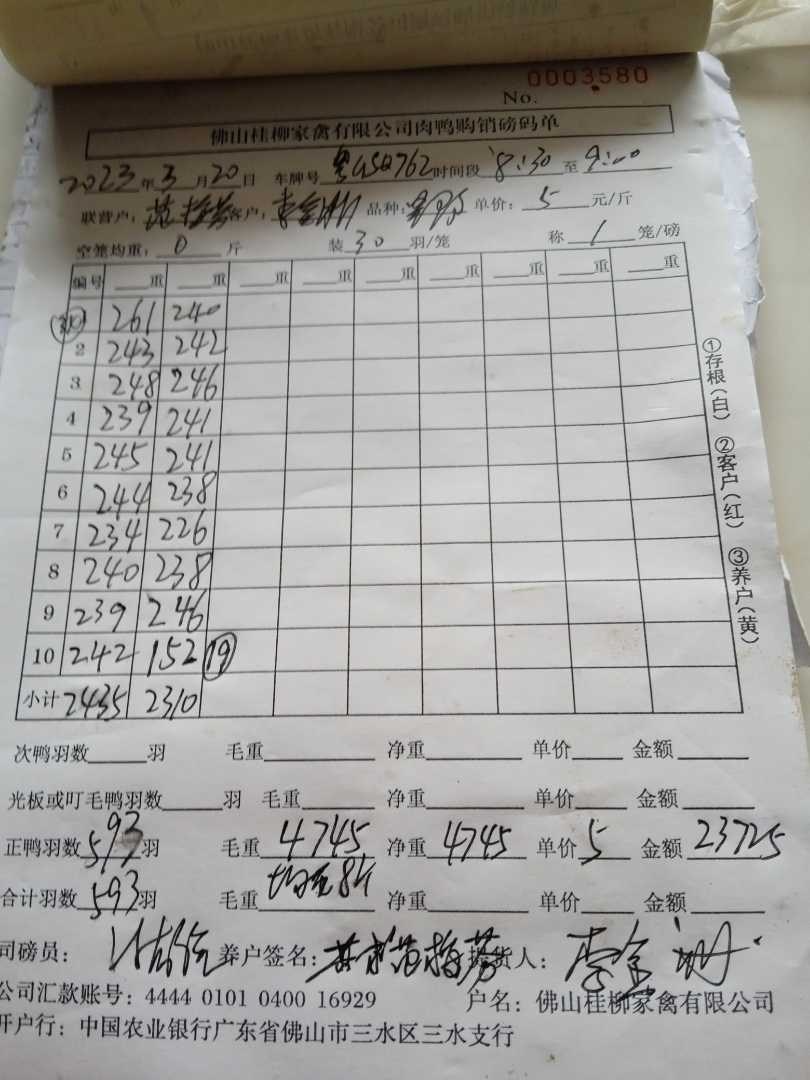 No. 0003580
佛山桂柳家禽有限公司肉鸭购销磅码单
2023年3月20日 车牌号 粤GSQ762 时间段 8:30 至 9:00
联营户: 范梅芳 客户: 李金 品种: 单价: 5 元/斤
空笼均重: 0 斤 装 30 羽/笼 称 1 笼/磅
编号 重 重 重 重 重 重 重 重
30 261 240
2 243 242
3 248 246
4 239 241
5 245 241
6 244 238
7 234 226
8 240 238
9 239 246
10 242 152 19
小计 2435 2310
①存根(白) ②客户(红) ③养户(黄)
次鸭羽数 羽 毛重 净重 单价 金额
光板或叮毛鸭羽数 羽 毛重 净重 单价 金额
正鸭羽数 593 羽 毛重 4745 净重 4745 单价 5 金额 23725
合计羽数 593 羽 毛重 均重8斤 净重 单价 金额
司磅员: 养户签名: 范梅芳 提货人: 李金
公司汇款账号: 4444 0101 0400 16929 户名: 佛山桂柳家禽有限公司
开户行: 中国农业银行广东省佛山市三水区三水支行